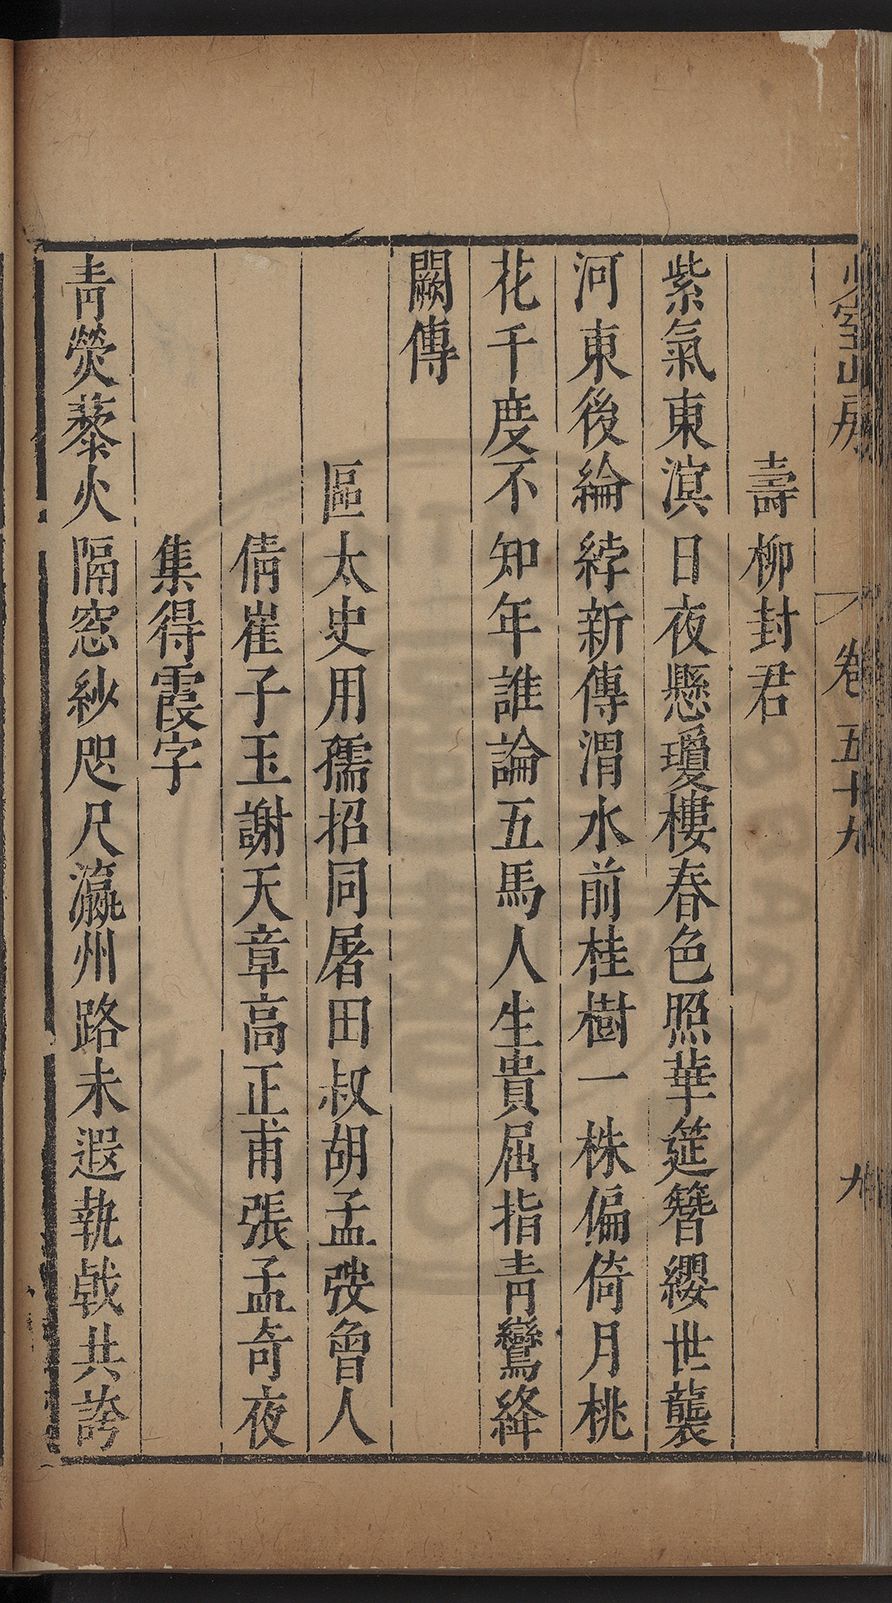 少室山房
卷五十九
九
壽柳封君
紫氣東溟日夜懸瓊樓春色照華筵簪纓世襲
河東後綸綍新傳渭水前桂樹一株偏倚月桃
花千度不知年誰論五馬人生貴屈指青鸞絳
闕傳
區太史用孺招同屠田叔胡孟弢曾人
倩崔子玉謝天章高正甫張孟奇夜
集得霞字
青熒藜火隔窓紗咫尺瀛州路未遐執戟共誇